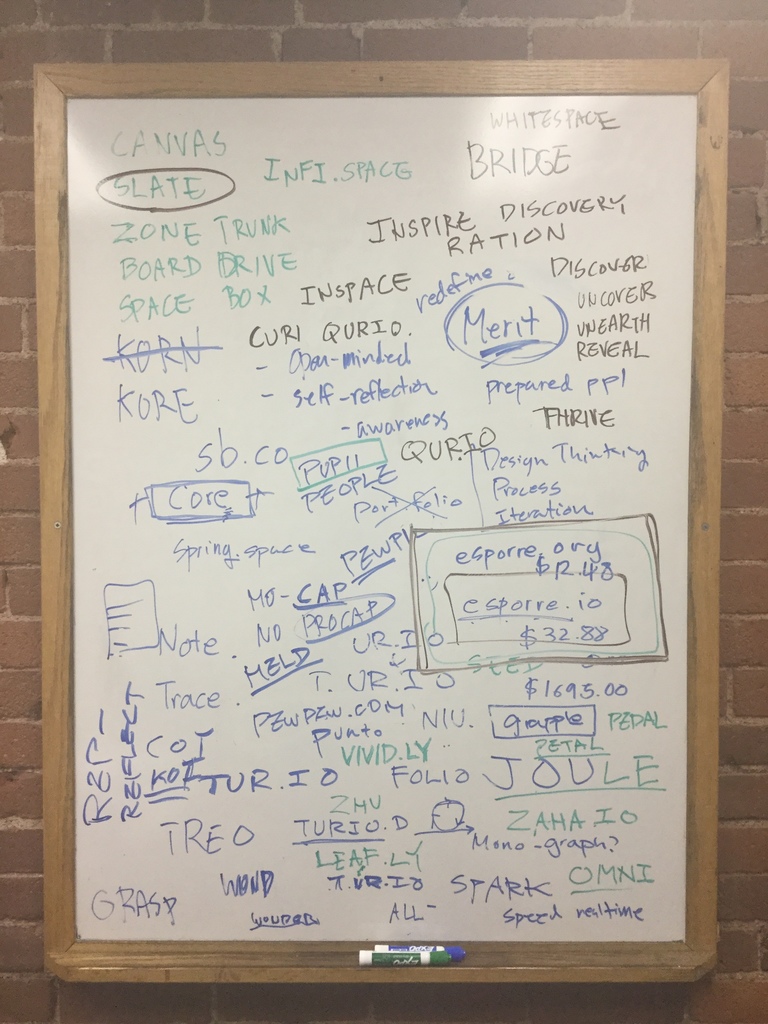 WHITESPACE
CANVAS
BRIDGE
INFI.SPACE
SLATE
DISCOVERY
INSPIRE
RATION
ZONE TRUNK
BOARD DRIVE
SPACE BOX
INSPACE
redefine
DISCOVER
UNCOVER
UNEARTH
REVEAL
Merit
KORN
CURI QURIO.
- Open-minded
- self-reflection
- awareness
KORE
prepared ppl
THRIVE
sb.co
PUPIL
PEOPLE
QURIO
Design Thinking
Process
Iteration
Core
Portfolio
spring.space
esporre.org
esporre.io
$32.88
MO-CAP
NO PROCAP
Note.
UR.IO
MELD
T.UR.IO
$1695.00
Trace.
PEWPEW.COM
NIU.
grapple
PEDAL
PETAL
punto
VIVID.LY
REFLECT
COI
KOI
TUR.IO
FOLIO
JOULE
ZHU
TREO
TURIO.D
ZAHA.IO
Mono-graph?
LEAF.LY
T.UR.IO
SPARK
OMNI
GRASP
ALL-
speed realtime